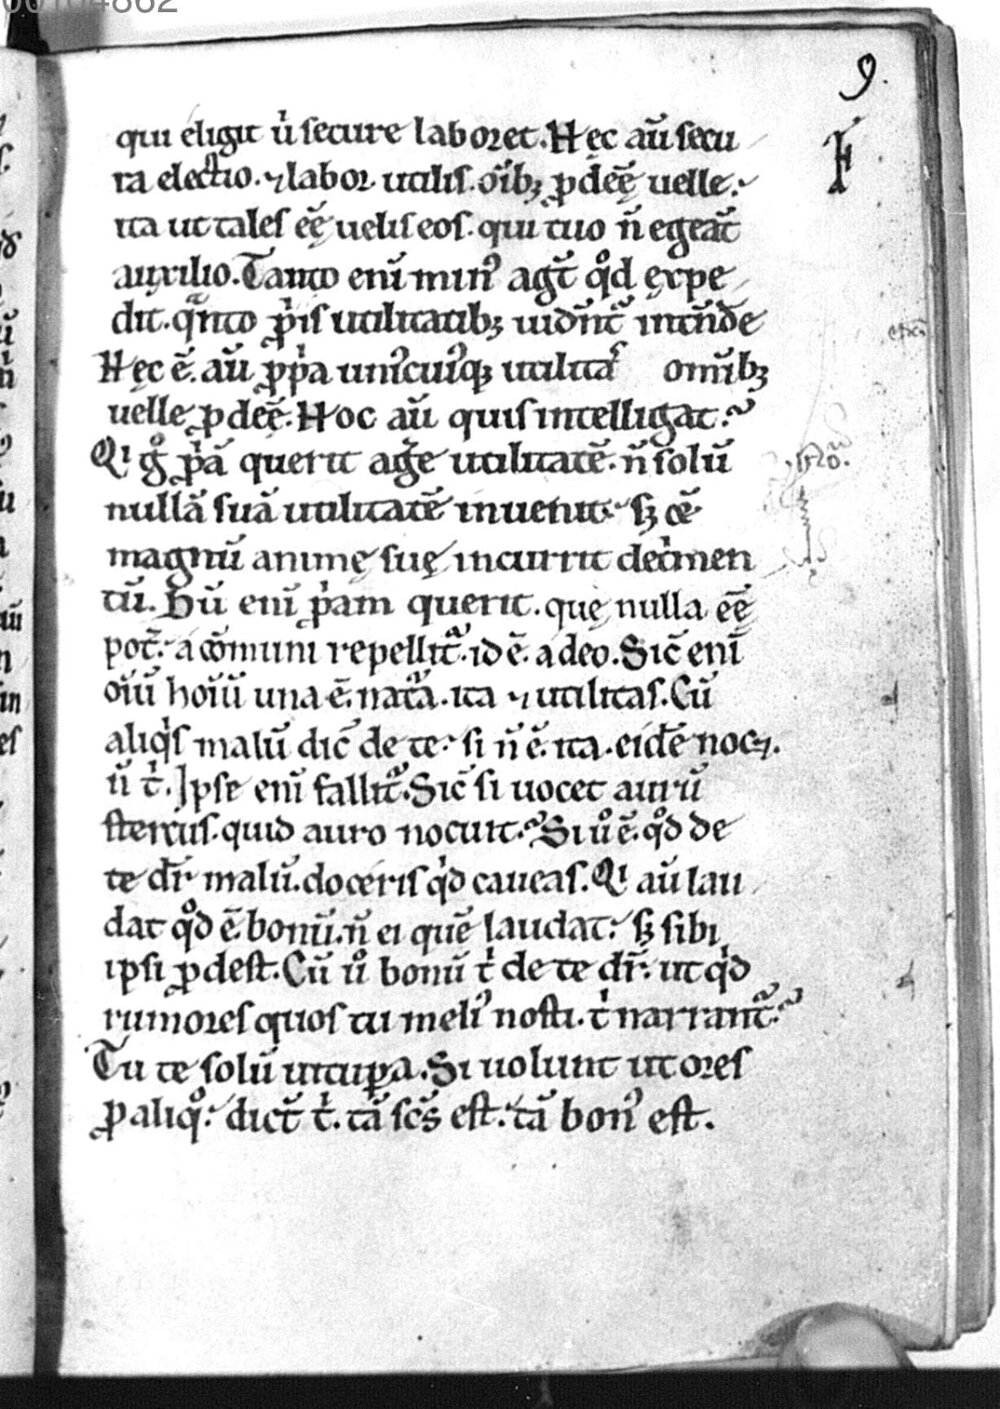 9.
qui eligit ů secure laboret. Hęc aū secu
ra electio. ⁊ labor utilis. oīb; ꝓdeē uelle.
ita ut tales eē uelis eos. qui tuo n̄ egeāt
auxilio. Tanto eni̅ min᾽ agit̄ qͦd expe
dit. qͣnto pͥis utilitatib; uidn̄t̄ intn̄de
Hęc ē. aū ꝓpͥa unicuiq; utilitas omīb;
uelle ꝓdeē. Hoc aū quis intelligat.
Qͥ gͦ pͥā querit agͤe utilitatē. n̄ solū
nullā suā utilitatē inuenit. s; cē
magnū animę suę incurrit detͥmen
tū. Dū eni̅ pͥam querit. quę nulla eē
pot̄. a cōmuni repellit̄. id ē. a deo. Sic̄ eni̅
oīū hoīū una ē. natͣa. ita ⁊ utilitas. Cū
aliqͥs malū dic̄ de te. si n̄ ē. ita. eidē noc&.
n̄ tͥ. Ipse eni̅ fallit̄. Sic̄ si uocet aurū
stercus. quid auro nocuit. Si uͦ ē. qͦd de
te dr̄ malū. doceris qͥd caueas. Qͥ aū lau
dat qͦd ē bonū. n̄ ei quē laudat. s; sibi
ipsi ꝓdest. Cū uͦ bonū tͥ de te dr̄. ut qͥd
rumores quos tu meli᾽ nosti. tͥ narrant̄.
Tu te solū uitupͣa. Si uolunt ut ores
ꝓ aliqͦ. dict̄ tͥ. tā sc̄s est. tā bon᾽ est.